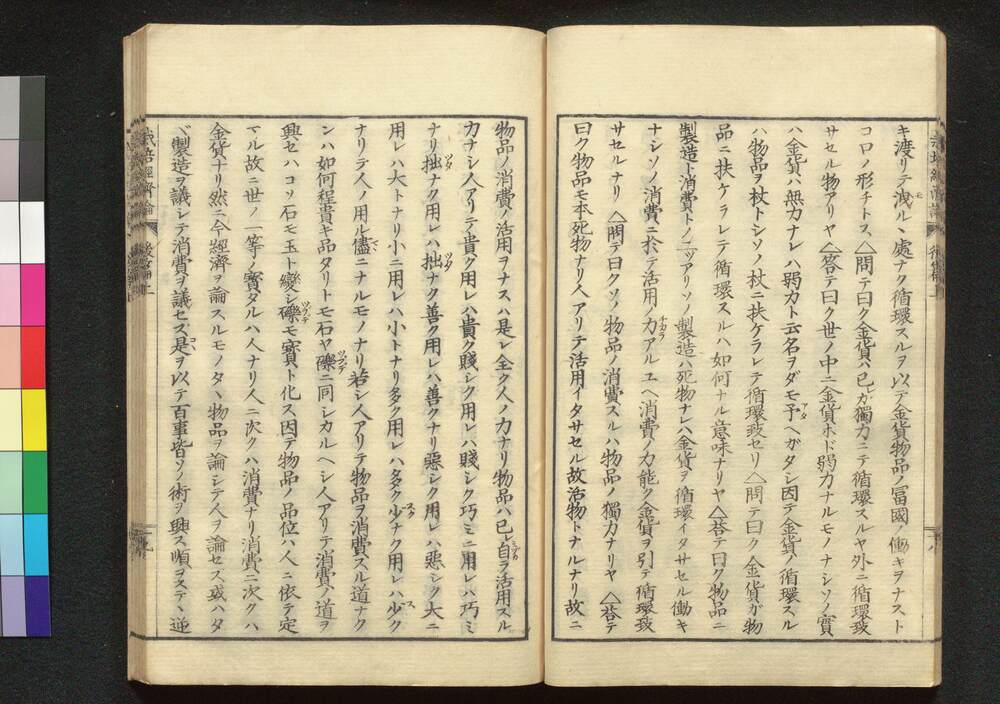 キ渡リテ洩ルヽ處ナク循環スルヲ以テ金貨物品ノ冨國ノ働キヲナスト
コロノ形チトス〇問テ曰ク金貨ハ已レガ獨力ニテ循環スルヤ外ニ循環致
サセル物アリヤ〇答テ曰ク世ノ中ニ金貨ホド弱力ナルモノナシソノ實
ハ金貨ハ無力ナレハ弱力ト云名ヲダモ予ヘガタシ因テ金貨ノ循環スル
ハ物品ヲ杖トシソノ杖ニ扶ケラレテ循環致セリ〇問テ曰ク金貨ガ物
品ニ扶ケラレテ循環スルハ如何ナル意味ナリヤ〇答テ曰ク物品ニ
製造ト消費トノ二ツアリソノ製造ハ死物ナレハ金貨ヲ循環イタサセル働キ
ナシソノ消費ニ於テ活用ノ力アルユヘ消費ノ力能ク金貨ヲ引テ循環致
サセルナリ〇問テ曰クソノ物品ノ消費スルハ物品ノ獨力ナリヤ〇答テ
曰ク物品モ本死物ナリ人アリテ活用イタサセル故活物トナルナリ故ニ
物品ノ消費ノ活用ヲナスハ是レ全ク人ノ力ナリ物品ハ已レ自ラ活用スル
力ナシ人アリテ貴ク用レハ貴ク賤シク用レハ賤シク巧ミニ用レハ巧ミ
ナリ拙ナク用レハ拙ナク善ク用レハ善クナリ惡シク用レハ惡シク大ニ
用レハ大トナリ小ニ用レハ小トナリ多ク用レハ多ク少ナク用レハ少ク
ナリテ人ノ用ル儘ニナルモノナリ若シ人アリテ物品ヲ消費スル道ナク
ンハ如何程貴キ品タリトモ石ヤ礫ニ同シカルヘシ人アリテ消費ノ道ヲ
興セハコソ石モ玉ト變シ礫モ寳ト化ス因テ物品ノ品位ハ人ニ依テ定
マル故ニ世ノ一等ノ寳タルハ人ナリ人ニ次クハ消費ナリ消費ニ次クハ
金貨ナリ然ニ今經濟ヲ論スルモノタヽ物品ヲ論シテ人ヲ論セス或ハタ
ヾ製造ヲ議シテ消費ヲ議セズ是ヲ以テ百事皆ソノ術ヲ興ス順ヲステヽ逆
栽培經濟論
後篇上